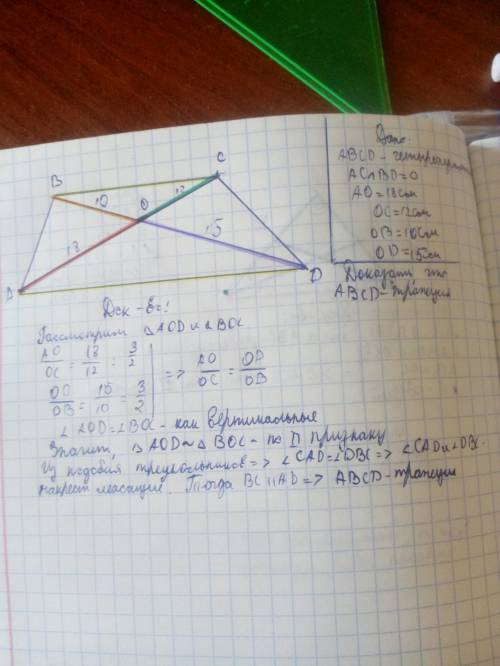 Дано:
ABCD - четырехугольник
AC∩BD=O
AO=18см
OC=12см
OB=10см
OD=15см
Доказать что
ABCD - трапеция
B
C
10
O
12
18
15
A
D
Док-во:
Рассмотрим △AOD и △BOC
AO/OC = 18/12 = 3/2
=> AO/OC = OD/OB
OD/OB = 15/10 = 3/2
∠AOD=∠BOC - как вертикальные
Значит, △AOD~△BOC - по II признаку
Из подобия треугольников => ∠CAD=∠DBC => ∠CAD и ∠DBC
накрест лежащие. Тогда BC||AD => ABCD - трапеция